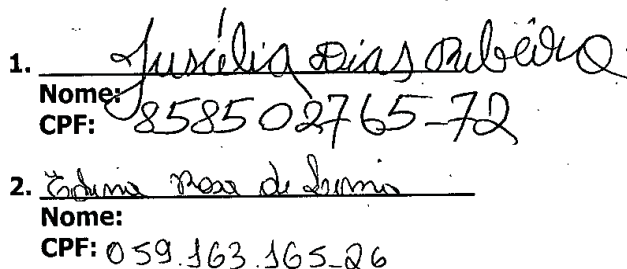 1. Juscélia Dias Ribeiro
Nome:
CPF: 858502765-72
2. Edima Rosa de
Nome:
CPF: 059.163.165-26